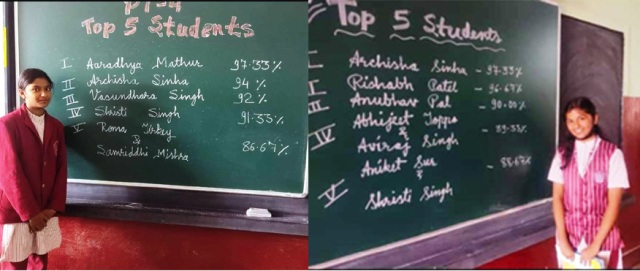 Top 5 Students
I Aaradhya Mathur 97.33%
II Archisha Sinha 94%
III Vasundhara Singh 92%
IV Shristi Singh 91.33%
V Roma Tirkey
&
Samriddhi Mishra 86.67%
Top 5 Students
Archisha Sinha - 97.33%
Rishabh Patil - 96.67%
Anubhav Pal - 90.00%
Abhijeet Toppo
IV & - 89.33%
Aviraj Singh
Aniket Sur - 88.67%
V &
Shristi Singh